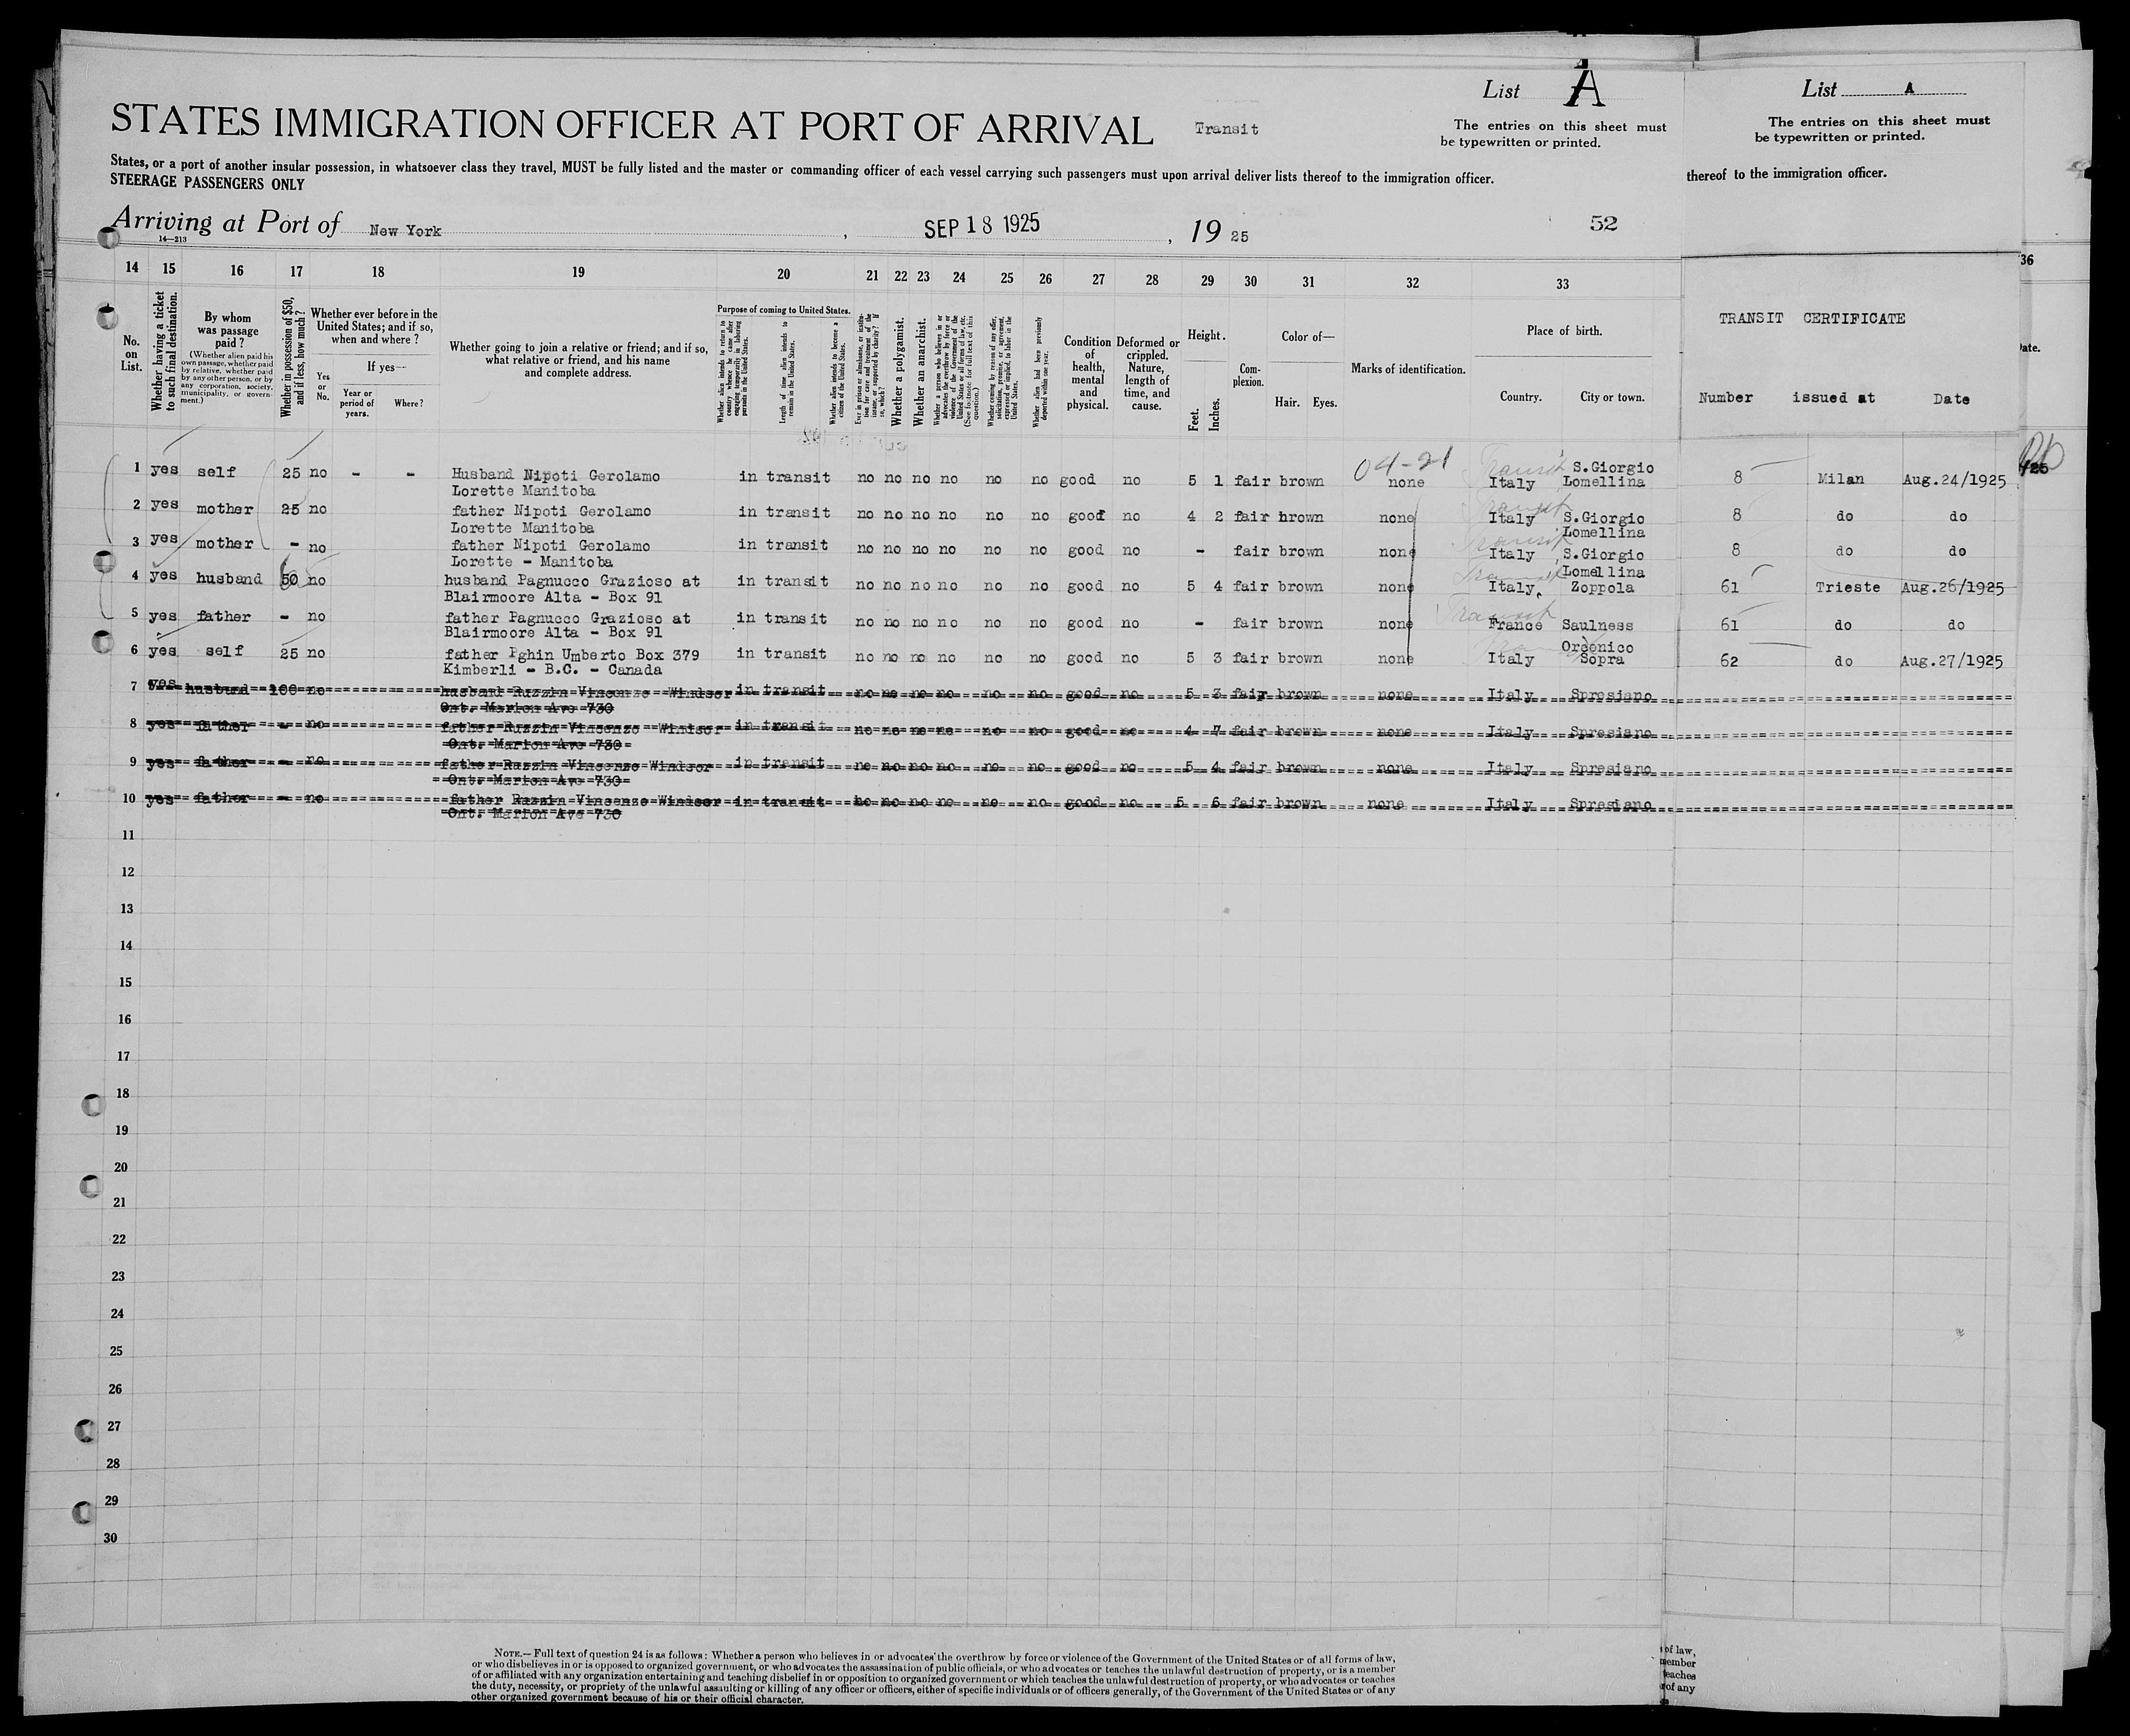 List A
List A
STATES IMMIGRATION OFFICER AT PORT OF ARRIVAL Transit
The entries on this sheet must
be typewritten or printed.
The entries on this sheet must
be typewritten or printed.
States, or a port of another insular possession, in whatsoever class they travel, MUST be fully listed and the master or commanding officer of each vessel carrying such passengers must upon arrival deliver lists thereof to the immigration officer.
thereof to the immigration officer.
STEERAGE PASSENGERS ONLY
Arriving at Port of New York, SEP 18 1925, 19 25 52
14—213
14 15 16 17 18 19 20 21 22 23 24 25 26 27 28 29 30 31 32 33 36
No. on List.
Whether having a ticket to such final destination.
By whom was passage paid?
(Whether alien paid his own passage, whether paid by relative, whether paid by any other person, or by any corporation, society, municipality, or government.)
Whether in possession of $50, and if less, how much?
Whether ever before in the United States; and if so, when and where?
Yes or No.
If yes—
Year or period of years.
Where?
Whether going to join a relative or friend; and if so, what relative or friend, and his name and complete address.
Purpose of coming to United States.
Whether alien intends to return to country whence he came after engaging temporarily in laboring pursuits in the United States.
Length of time alien intends to remain in the United States.
Whether alien intends to become a citizen of the United States.
Ever in prison or almshouse, or institution for care and treatment of the insane, or supported by charity? If so, which?
Whether a polygamist.
Whether an anarchist.
Whether a person who believes in or advocates the overthrow by force or violence of the Government of the United States or all forms of law, etc. (See footnote for full text of this question.)
Whether coming by reason of any offer, solicitation, promise, or agreement, expressed or implied, to labor in the United States.
Whether alien had been previously deported within one year.
Condition of health, mental and physical.
Deformed or crippled. Nature, length of time, and cause.
Height.
Feet. Inches.
Complexion.
Color of—
Hair. Eyes.
Marks of identification.
Place of birth.
Country. City or town.
TRANSIT CERTIFICATE
Number issued at Date
Date.
04-21
1 yes self 25 no - - Husband Nipoti Gerolamo in transit no no no no no no good no 5 1 fair brown none Transit Italy S.Giorgio 8 Milan Aug.24/1925
Lorette Manitoba Lomellina
2 yes mother 25 no father Nipoti Gerolamo in transit no no no no no no good no 4 2 fair brown none Transit Italy S.Giorgio 8 do do
Lorette Manitoba Lomellina
3 yes mother - no father Nipoti Gerolamo in transit no no no no no no good no - fair brown none Transit Italy S.Giorgio 8 do do
Lorette - Manitoba Lomellina
4 yes husband 50 no husband Pagnucco Grazioso at in transit no no no no no no good no 5 4 fair brown none Transit Italy. Zoppola 61 Trieste Aug.26/1925
Blairmoore Alta - Box 91
5 yes father - no father Pagnucco Grazioso at in transit no no no no no no good no - fair brown none Transit France Saulness 61 do do
Blairmoore Alta - Box 91
6 yes self 25 no father Pghin Umberto Box 379 in transit no no no no no no good no 5 3 fair brown none Italy Orcenico 62 do Aug.27/1925
Kimberli - B.C. - Canada Sopra
7 yes husband 100 no husband Ruzzin Vincenzo Windsor in transit no no no no no no good no 5 3 fair brown none Italy Spresiano
Ont. Marion Ave 730
8 yes father - no father Ruzzin Vincenzo Windsor in transit no no no no no no good no 4 7 fair brown none Italy Spresiano
Ont. Marion Ave 730
9 yes father - no father Ruzzin Vincenzo Windsor in transit no no no no no no good no 5 4 fair brown none Italy Spresiano
Ont. Marion Ave 730
10 yes father - no father Ruzzin Vincenzo Windsor in transit no no no no no no good no 5 6 fair brown none Italy Spresiano
Ont. Marion Ave 730
11
12
13
14
15
16
17
18
19
20
21
22
23
24
25
26
27
28
29
30
NOTE.—Full text of question 24 is as follows: Whether a person who believes in or advocates the overthrow by force or violence of the Government of the United States or of all forms of law,
or who disbelieves in or is opposed to organized government, or who advocates the assassination of public officials, or who advocates or teaches the unlawful destruction of property, or is a member
of or affiliated with any organization entertaining and teaching disbelief in or opposition to organized government or which teaches the unlawful destruction of property, or who advocates or teaches
the duty, necessity, or propriety of the unlawful assaulting or killing of any officer or officers, either of specific individuals or of officers generally, of the Government of the United States or of any
other organized government because of his or their official character.
of law,
member
teaches
of any